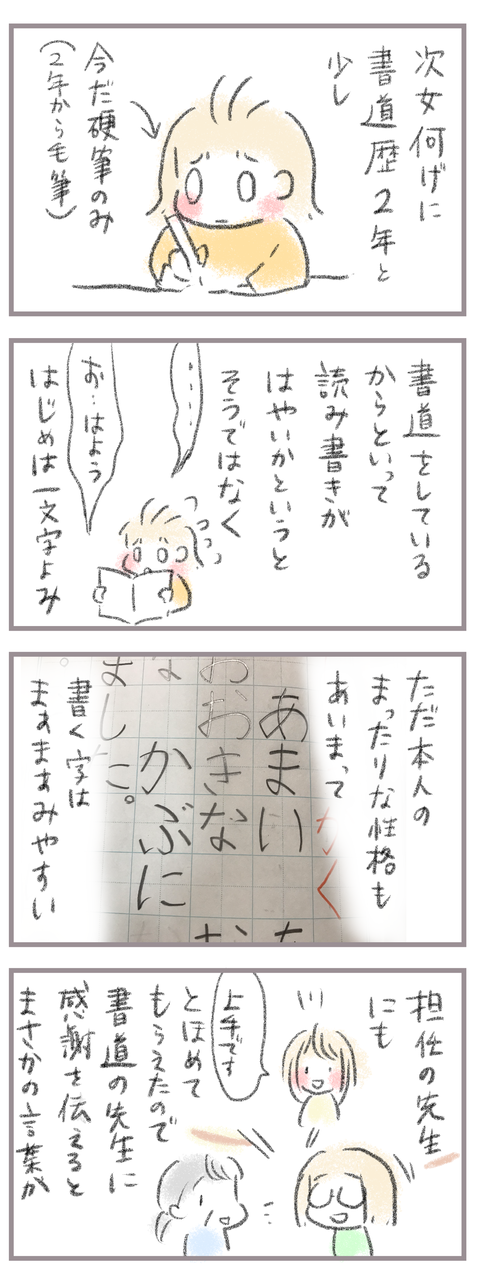 次女何げに
書道歴2年と
少し
今だ硬筆のみ
(2年から毛筆)
書道をしている
からといって
読み書きが
はやいかというと
そうではなく
……
お…はよう
はじめは一文字よみ
ただ本人の
まったりな性格も
あいまって
あまい
おおきな
かぶに
な
ました。
書く字は
まぁまぁみやすい
担任の先生
にも
上手です
とほめて
もらえたので
書道の先生に
感謝を伝えると
まさかの言葉が